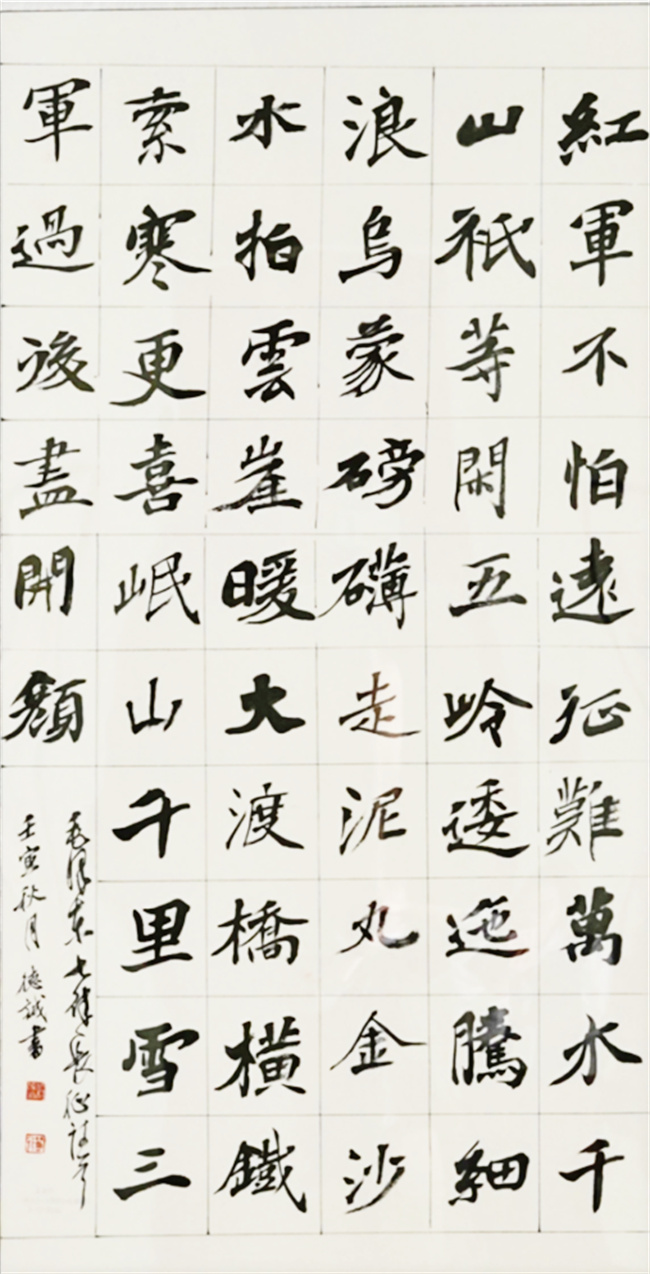 紅軍不怕遠征難萬水千
山祇等閑五岭逶迤騰細
浪烏蒙磅礴走泥丸金沙
水拍雲崖暖大渡橋橫鐵
索寒更喜岷山千里雪三
軍過後盡開顏
毛澤東七律長征詩
壬寅秋月 德誠書